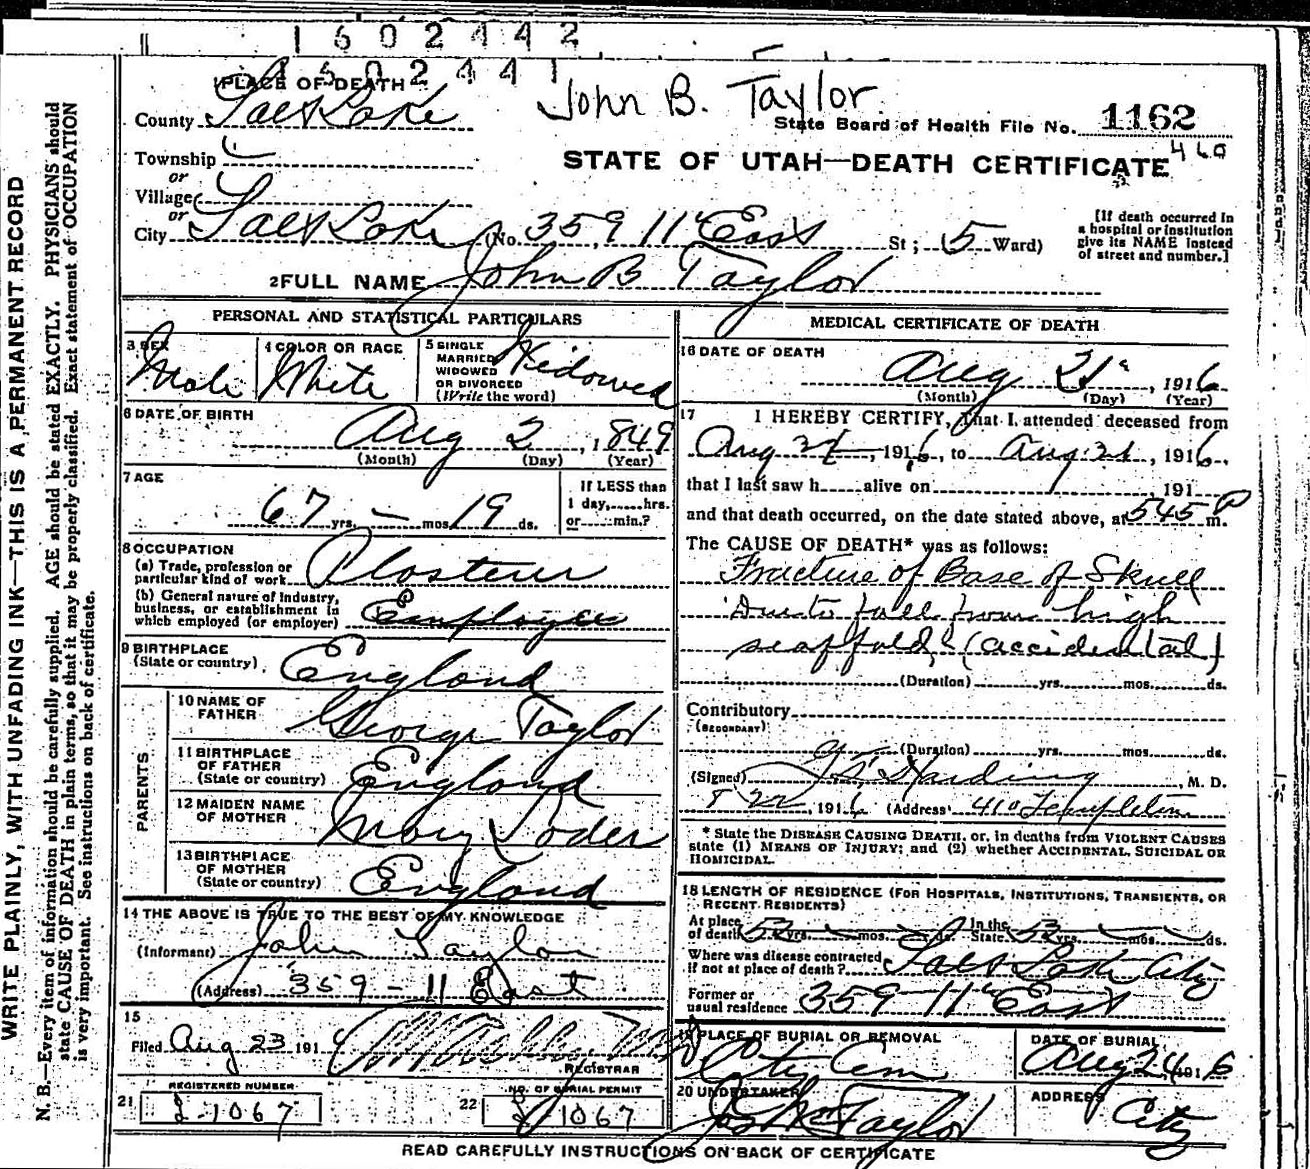 1 6 0 2 4 4 2
1 6 0 2 4 4 1
John B. Taylor
1 PLACE OF DEATH
County Salt Lake
State Board of Health File No. 1162
460
Township
or
Village
or
STATE OF UTAH—DEATH CERTIFICATE
City Salt Lake (No. 359 11" East St; 5 Ward)
[If death occurred in
a hospital or institution
give its NAME instead
of street and number.]
2 FULL NAME John B Taylor
PERSONAL AND STATISTICAL PARTICULARS
3 SEX Male
4 COLOR OR RACE White
5 SINGLE
MARRIED
WIDOWED
OR DIVORCED
(Write the word)
Widowed
6 DATE OF BIRTH
Aug 2, 1849
(Month) (Day) (Year)
7 AGE
67 yrs. — mos. 19 ds.
If LESS than
1 day,......hrs.
or......min.?
8 OCCUPATION
(a) Trade, profession or
particular kind of work Plasterer
(b) General nature of Industry,
business, or establishment in
which employed (or employer) Employee
9 BIRTHPLACE
(State or country) England
PARENTS
10 NAME OF
FATHER George Taylor
11 BIRTHPLACE
OF FATHER
(State or country) England
12 MAIDEN NAME
OF MOTHER Mary
13 BIRTHPLACE
OF MOTHER
(State or country) England
14 THE ABOVE IS TRUE TO THE BEST OF MY KNOWLEDGE
(Informant) John Taylor
(Address) 359 - 11 East
15
Filed Aug 23 191
REGISTRAR
REGISTERED NUMBER
21 1067
NO. OF BURIAL PERMIT
22 1067
MEDICAL CERTIFICATE OF DEATH
16 DATE OF DEATH
Aug 21, 1916
(Month) (Day) (Year)
17 I HEREBY CERTIFY, That I attended deceased from
Aug 21, 1916, to Aug 21, 1916,
that I last saw h...... alive on 191
and that death occurred, on the date stated above, at 545 P m.
The CAUSE OF DEATH* was as follows:
Fracture of Base of Skull
Due to fall from high
scaffold, (accidental)
(Duration) yrs. mos. ds.
Contributory
(SECONDARY)
(Duration) yrs. mos. ds.
(Signed) Harding, M. D.
8 22 1916 (Address) 410 Templeton
* State the DISEASE CAUSING DEATH, or, in deaths from VIOLENT CAUSES
state (1) MEANS OF INJURY; and (2) whether ACCIDENTAL, SUICIDAL OR
HOMICIDAL.
18 LENGTH OF RESIDENCE (FOR HOSPITALS, INSTITUTIONS, TRANSIENTS, OR
RECENT RESIDENTS)
At place
of death 52 yrs. — mos. — ds. In the
State 52 yrs. — mos. — ds.
Where was disease contracted
if not at place of death? Salt Lake City
Former or
usual residence 359 11" East
19 PLACE OF BURIAL OR REMOVAL
City Cem
DATE OF BURIAL
Aug 24 1916
20 UNDERTAKER
Taylor
ADDRESS
City
READ CAREFULLY INSTRUCTIONS ON BACK OF CERTIFICATE
WRITE PLAINLY, WITH UNFADING INK—THIS IS A PERMANENT RECORD
N. B.—Every item of information should be carefully supplied. AGE should be stated EXACTLY. PHYSICIANS should
state CAUSE OF DEATH in plain terms, so that it may be properly classified. Exact statement of OCCUPATION
is very important. See instructions on back of certificate.